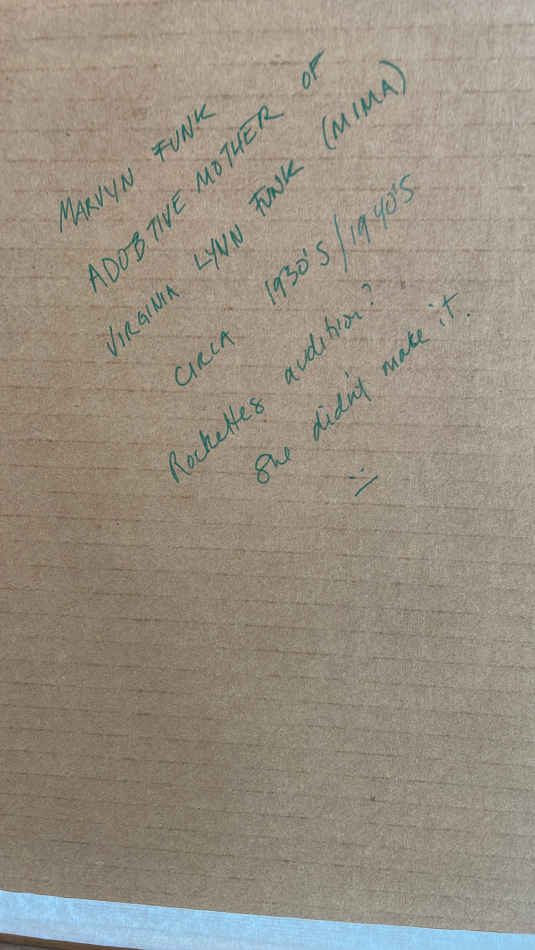 MARVYN FUNK
ADOBTIVE MOTHER OF
VIRGINIA LYNN FUNK (MIMA)
CIRCA 1930'S/1940'S
Rockettes audition?
She didn't make it.